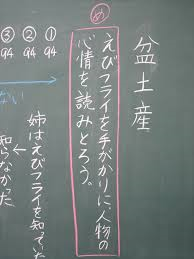 盆土産
め
えびフライを手がかりに、人物の
心情を読みとろう。
① 94
② 94
③ 94
ない
姉はえびフライを知っていた
知らなかった